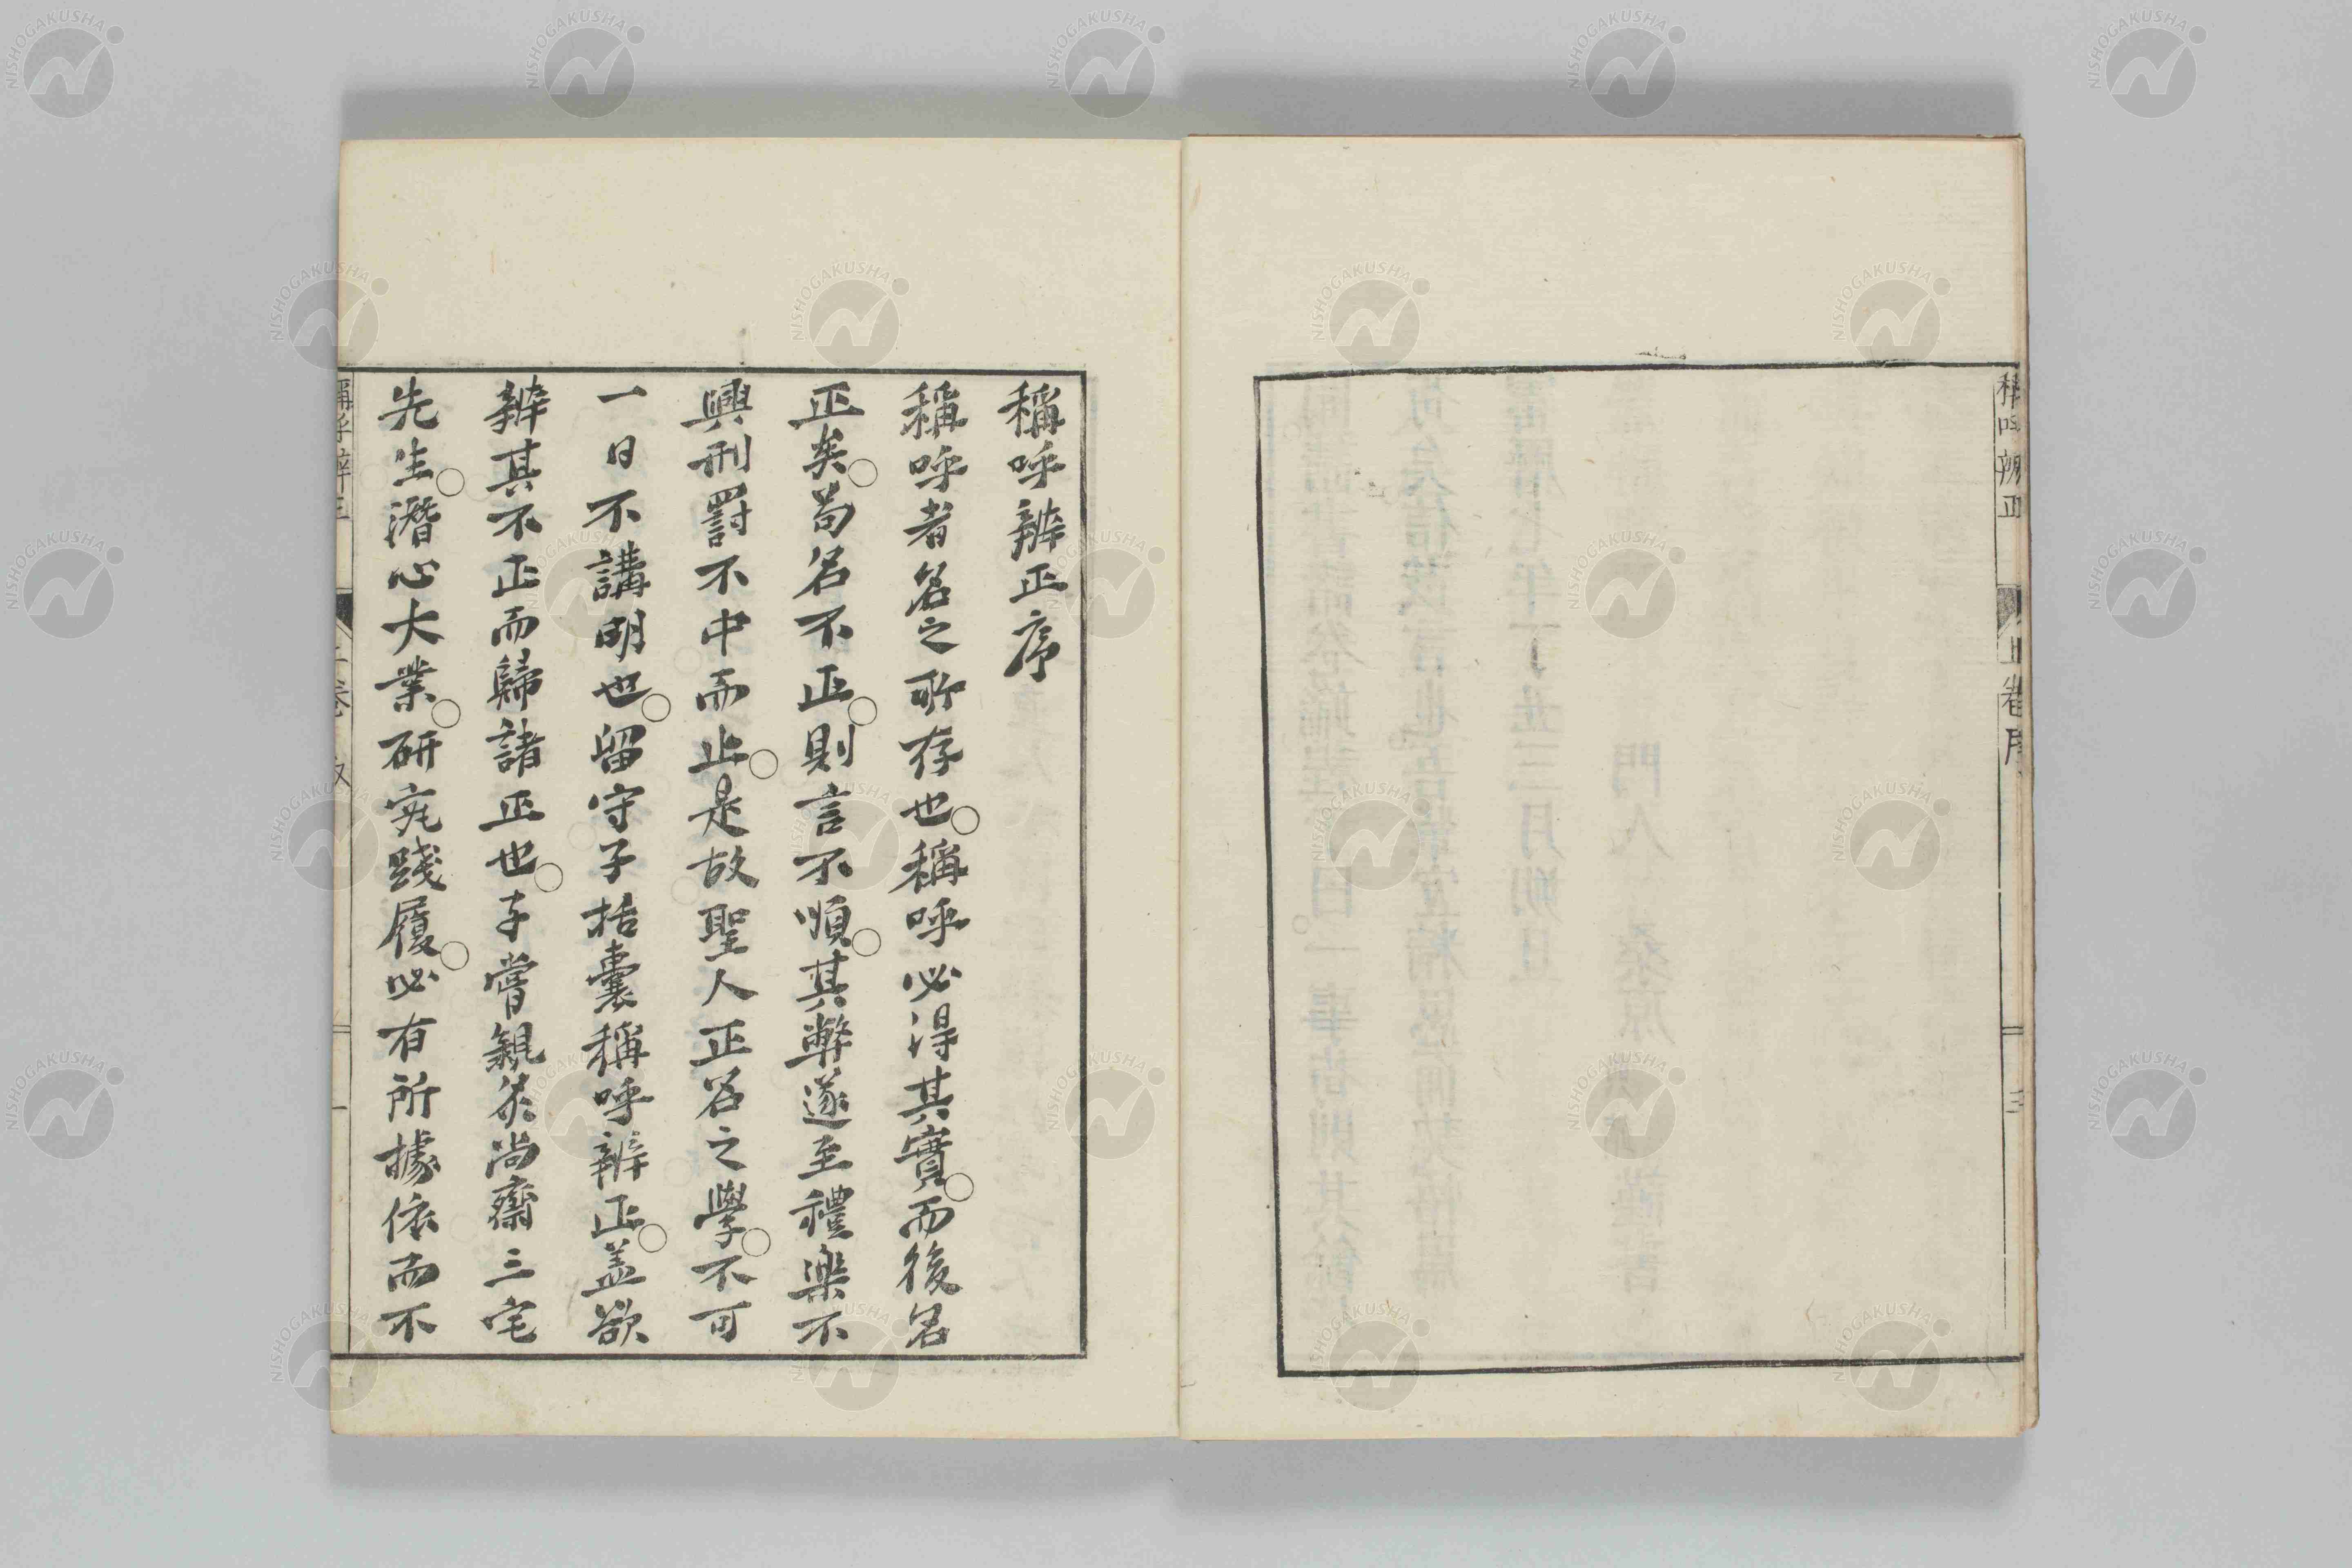 稱呼辨正 上卷序 三
稱呼辨正序
稱呼者名之所存也○稱呼必得其實○而後名
正矣○苟名不正○則言不順○其弊遂至禮樂不
興刑罰不中而止○是故聖人正名之學○不可
一日不講明也○留守子括囊稱呼辨正○盖欲
辨其不正而歸諸正也○予嘗親炙尚齋三宅
先生○潛心大業○研究踐履○必有所據依而不
稱呼辨正
NISHOGAKUSHA